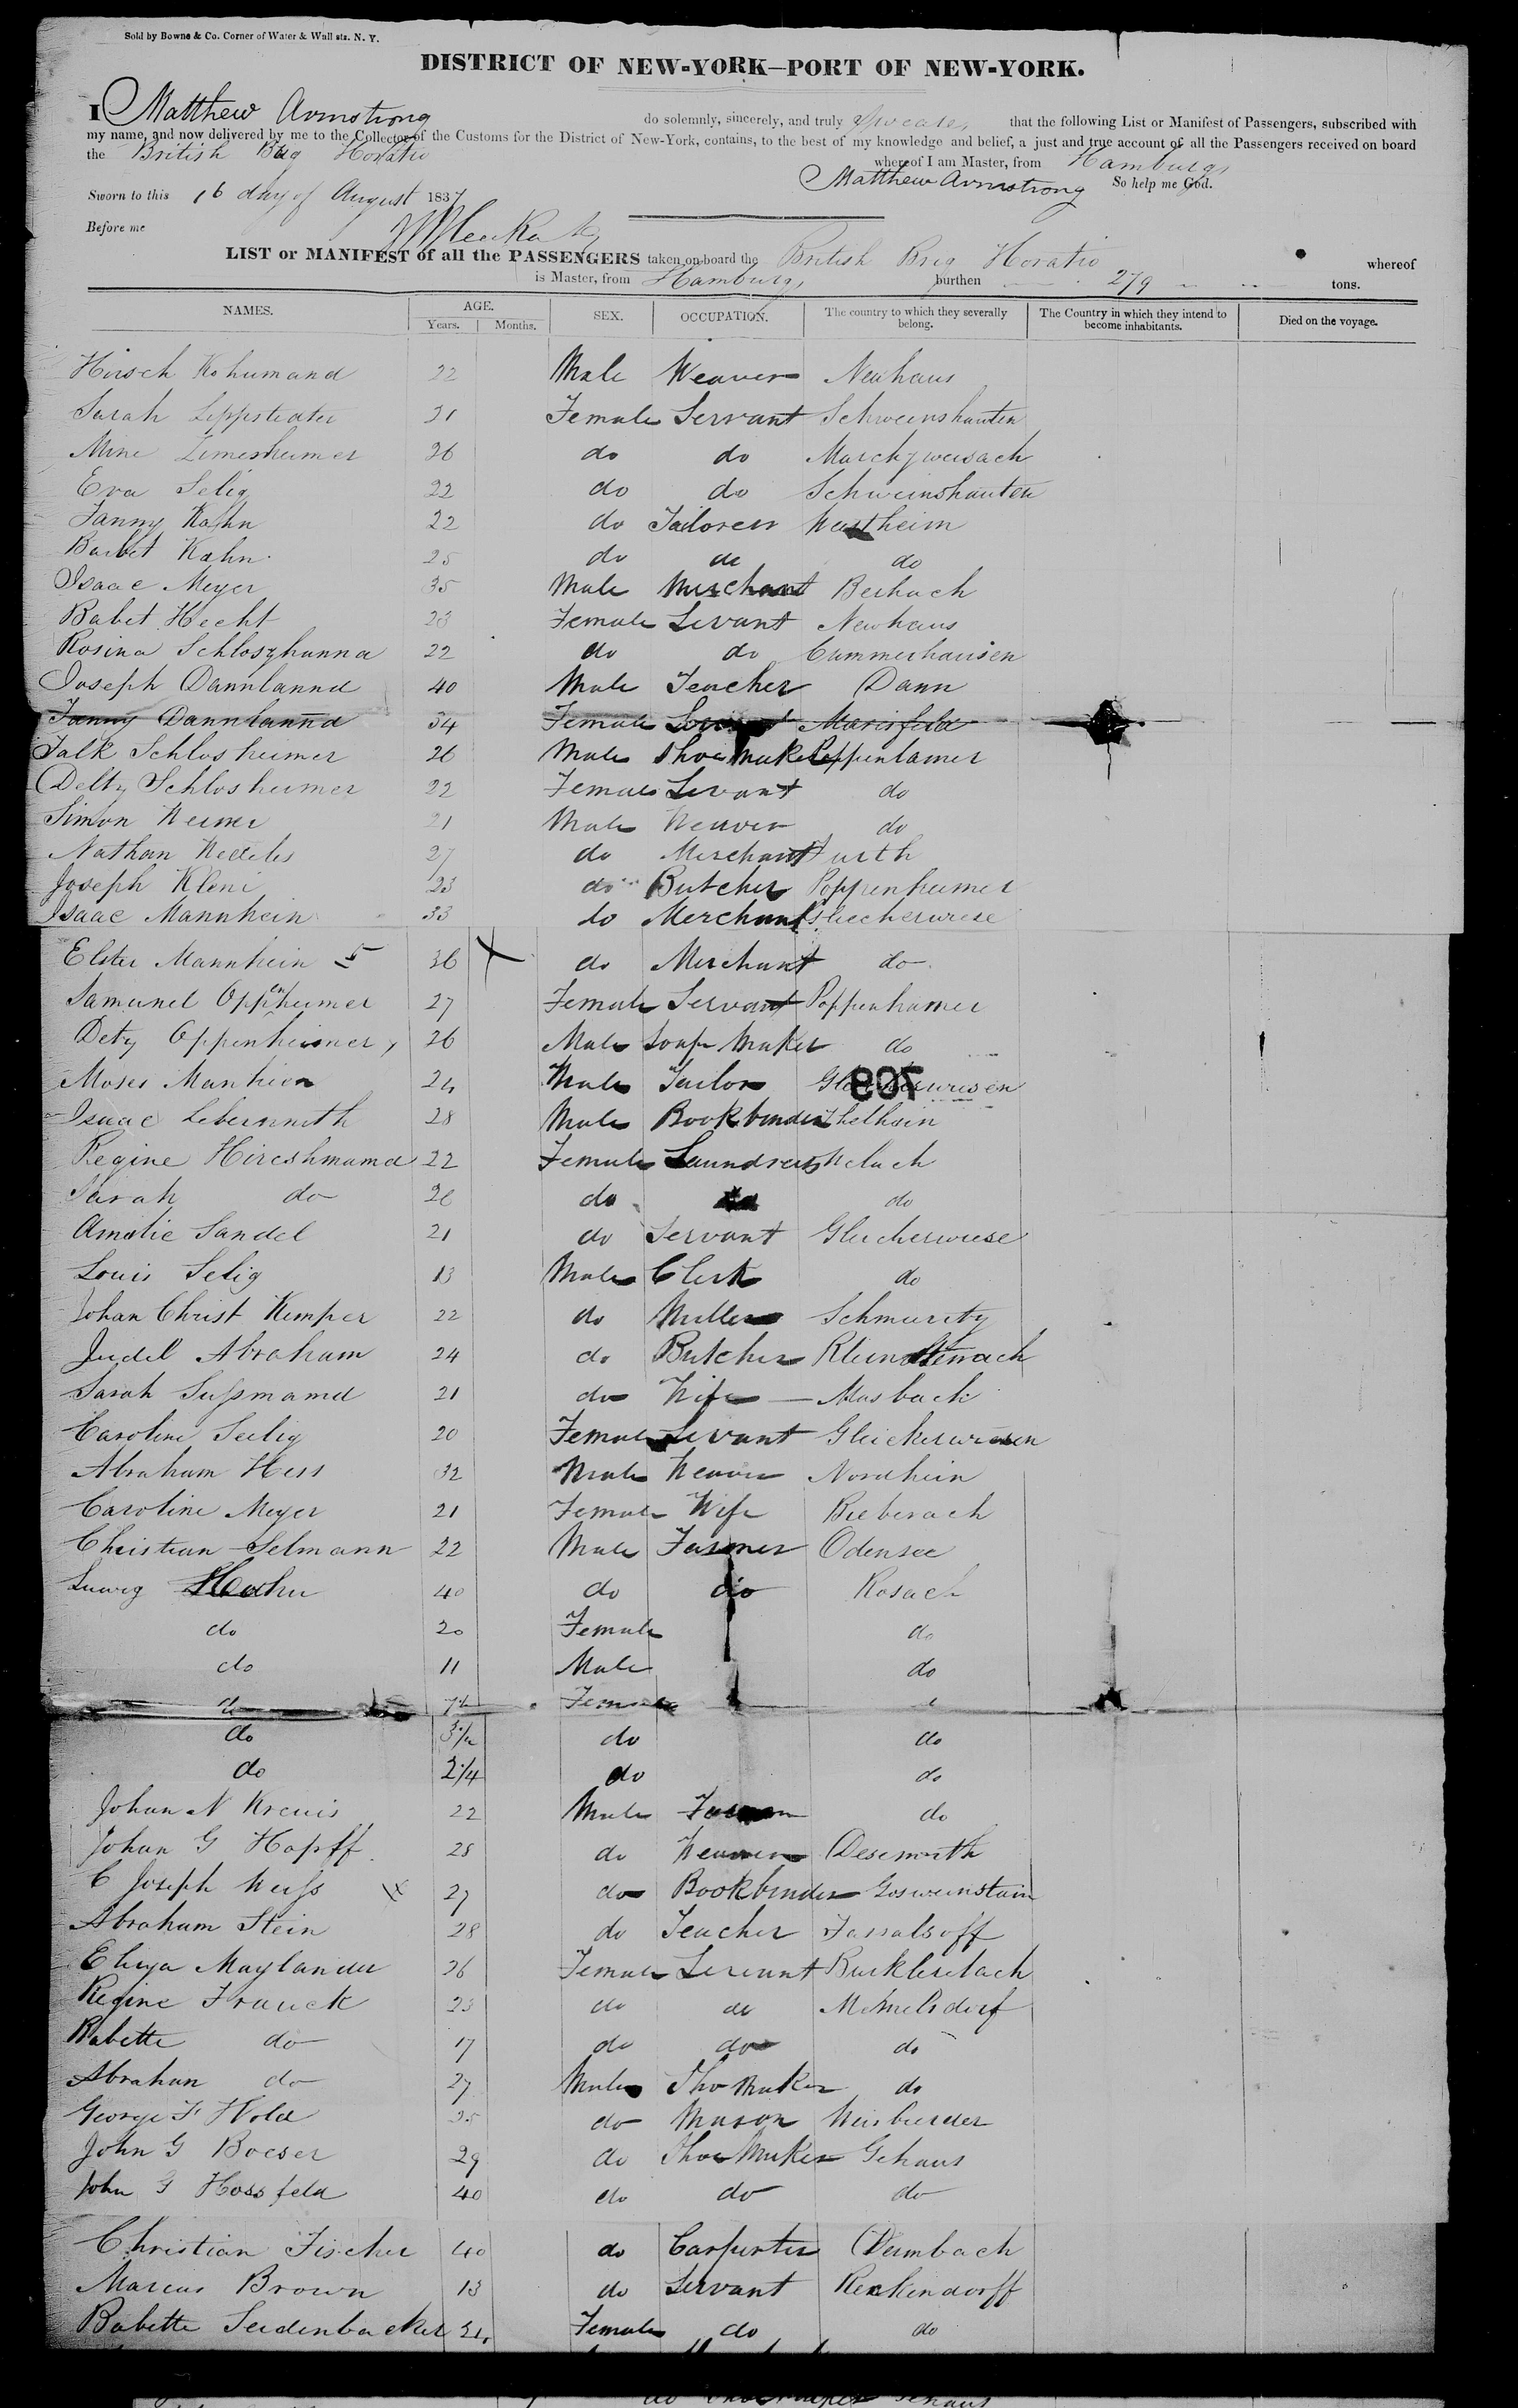 Sold by Bowne & Co. Corner of Water & Wall sts. N. Y.
DISTRICT OF NEW-YORK—PORT OF NEW-YORK.
I Matthew Armstrong do solemnly, sincerely, and truly that the following List or Manifest of Passengers, subscribed with
my name, and now delivered by me to the Collector of the Customs for the District of New-York, contains, to the best of my knowledge and belief, a just and true account of all the Passengers received on board
the British Brig Horatio whereof I am Master, from Hamburg
Matthew Armstrong So help me God.
Sworn to this 16 day of August 1837
Before me
LIST or MANIFEST of all the PASSENGERS taken on board the British Brig Horatio whereof
is Master, from Hamburg, burthen 279 tons.
NAMES. AGE. Years. Months. SEX. OCCUPATION. The country to which they severally belong. The Country in which they intend to become inhabitants. Died on the voyage.
Hirsch Kohumand 22 Male Weaver Neuhaus
Sarah 31 Female Servant Schweinshauten
Mine 26 do do
Eva Selig 22 do do Schweinshauten
Fanny Kahn 22 do Tailoress
Babet Kahn 25 do do do
Isaac Meyer 35 Male Merchant
Babet Hecht 23 Female Servant Newhaus
Rosina 22 do do Cummerhausen
Joseph Dannlannd 40 Male Teacher Dann
Fanny Dannlannd 34 Female Marisfeld
Falk Schlosheimer 26 Male Shoemaker
Delty Schlosheimer 22 Female Servant do
Simon 21 Male Weaver do
Nathan 27 do Merchant Furth
Joseph Kleni 23 do Butcher Poppenheimer
Isaac Mannhein 33 do Merchant
Elster Mannhein 5 36 X do Merchant do
Samunel Oppenheimer 27 Female Servant Poppenhamer
Dety Oppenheimer, 26 Male Soap Maker do
Moses Manhien 24 Male Tailor
807
Isaac 28 Male Bookbinder
Regine Hireshmamd 22 Female Laundress
Sarah do 26 do do
Amalie Sandel 21 do Servant Gleicherwiese
Louis Selig 13 Male Clerk do
Johan Christ Kemper 22 do Miller
Judel Abraham 24 do Butcher
Sarah Sussmamd 21 do Wife Masback
Caroline Seelig 20 Female Servant Gleickerwiesen
Abraham Hess 32 Male Weaver Nordhein
Caroline Meyer 21 Female Wife Bieberach
Christian Selmann 22 Male Farmer Odensee
Luwig Hahn 40 do do Rosach
do 20 Female do
do 11 Male do
do Female
do 3½ do do
do 2¼ do do
Johan N 22 Male do
Johan G Hopff 28 do Weaver
C Joseph Weiss 27 do Bookbinder Gosweinstain
Abraham Stein 28 do Teacher
Maylander 26 Female Servant
Regine Franck 23 do do Memelsdorf
Babette do 17 do do do
Abraham do 27 Male Shomaker do
George F Hold 25 do Mason
John G Boeser 29 do Shoe Maker Gehaus
John G Hossfeld 40 do do do
Christian Fischer 40 do Carpenter Dermbach
Marcus Brown 13 do Servant Reckendorff
Babette Seidenbacker Female do do